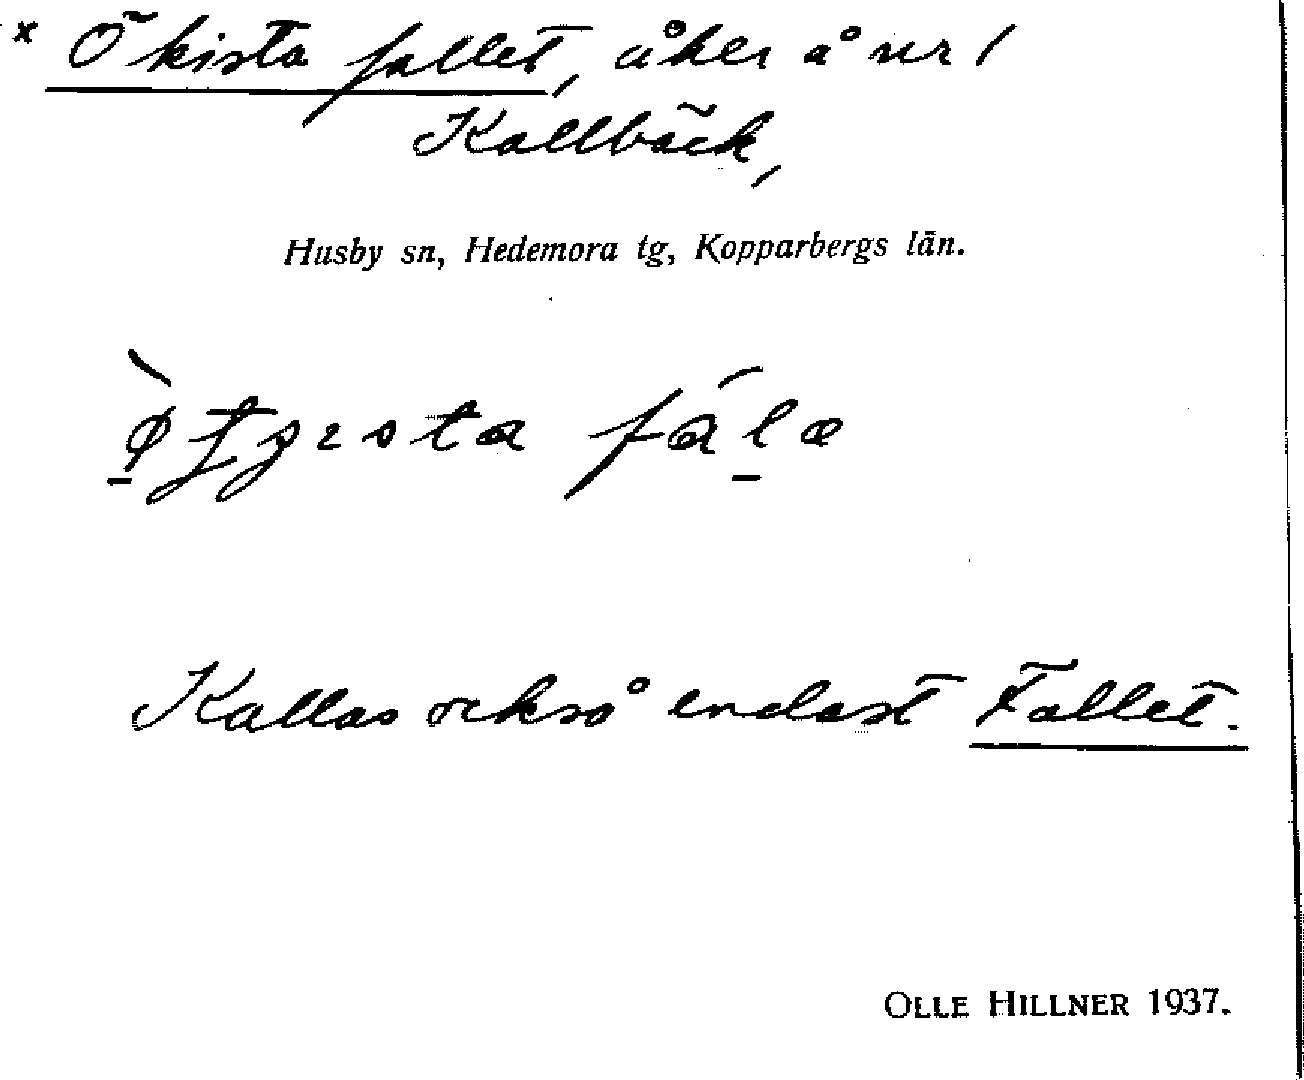 × Ökista fallet, åker å nr 1
Kallbäck,
Husby sn, Hedemora tg, Kopparbergs län.
Kallas också endast Fallet.
OLLE HILLNER 1937.